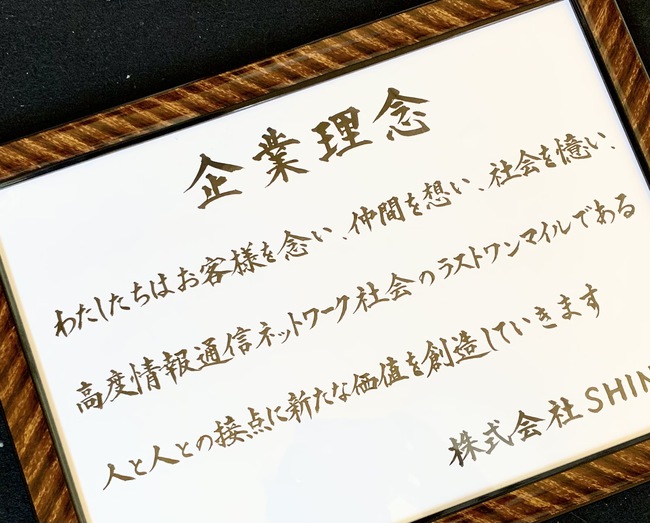 企業理念
わたしたちはお客様を念い、仲間を想い、社会を憶い、
高度情報通信ネットワーク社会のラストワンマイルである
人と人との接点に新たな価値を創造していきます
株式会社SHIN